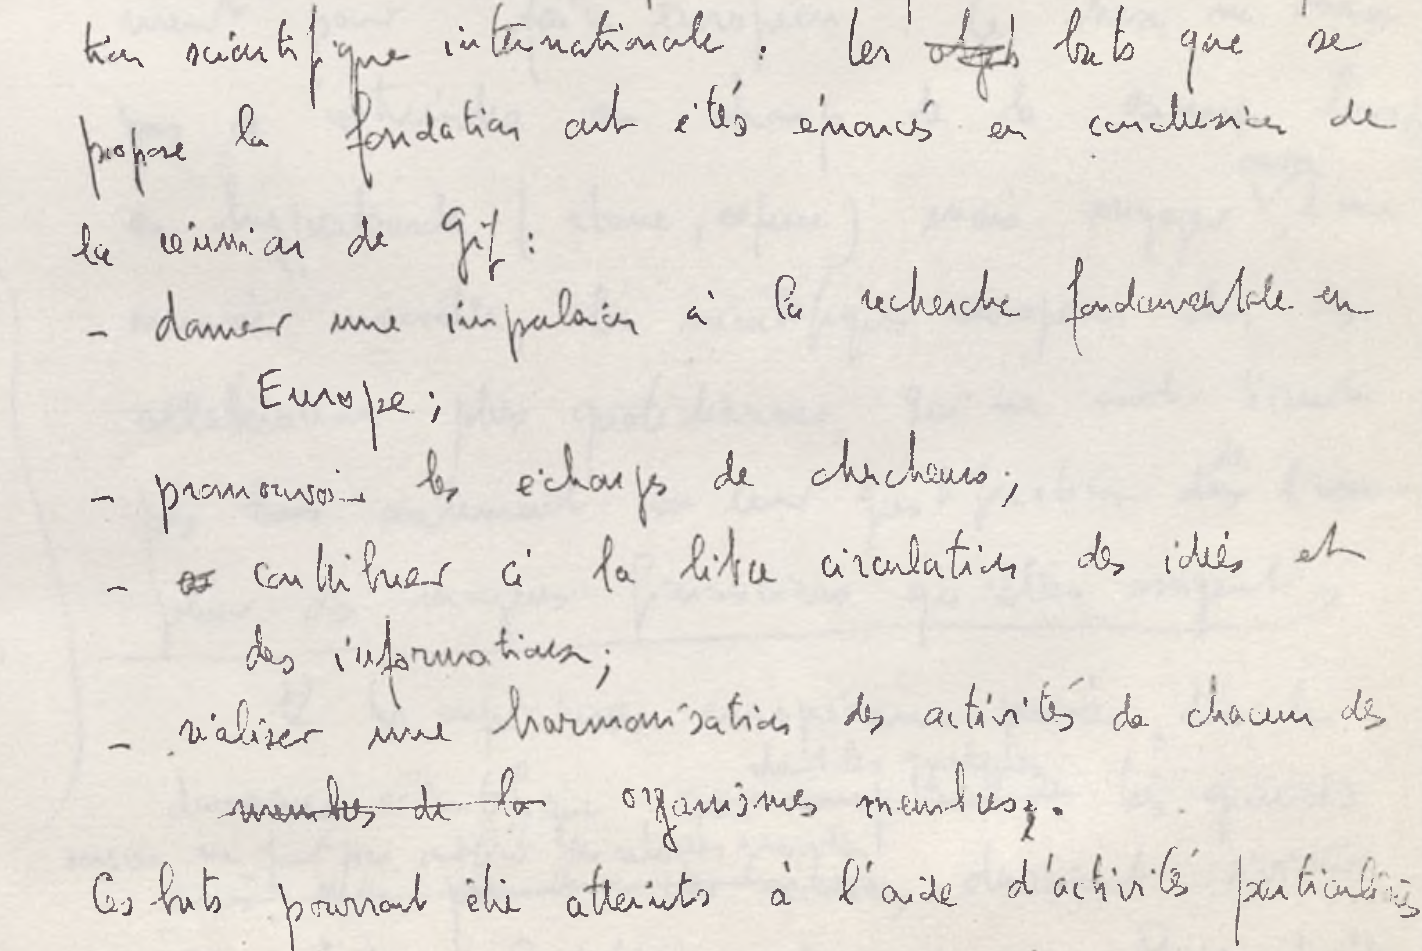 tion scientifique internationale. Les buts que se
propose la fondation ont étés énoncés en conclusion de
la réunion de Gif :
- donner une impulsion à la recherche fondamentale en
Europe ;
- promouvoir les échanges de chercheurs ;
- contribuer à la libre circulation des idées et
des informations ;
- réaliser une harmonisation des activités de chacun des
membres de la organismes membres.
Ces buts pourront être atteints à l'aide d'activités particulières